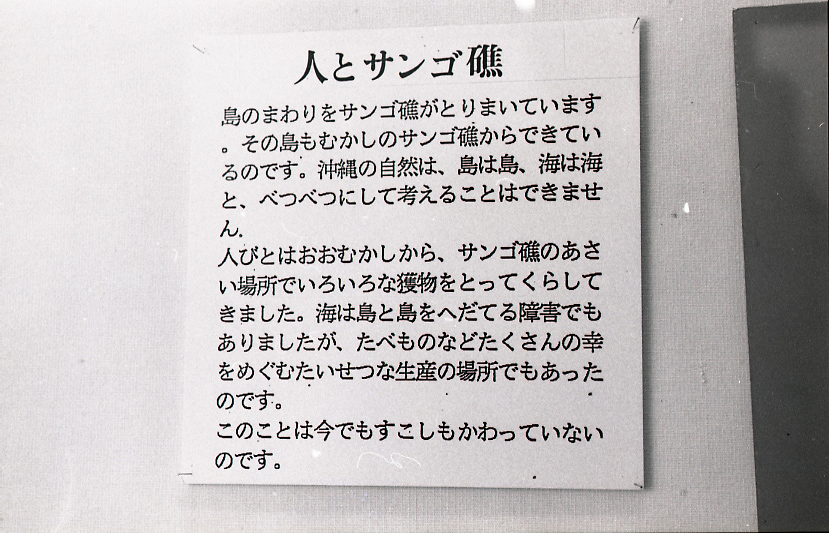 人とサンゴ礁
島のまわりをサンゴ礁がとりまいています
。その島もむかしのサンゴ礁からできてい
るのです。沖縄の自然は、島は島、海は海
と、べつべつにして考えることはできませ
ん.
人びとはおおむかしから、サンゴ礁のあさ
い場所でいろいろな獲物をとってくらして
きました。海は島と島をへだてる障害でも
ありましたが、たべものなどたくさんの幸
をめぐむたいせつな生産の場所でもあった
のです。
このことは今でもすこしもかわっていない
のです。